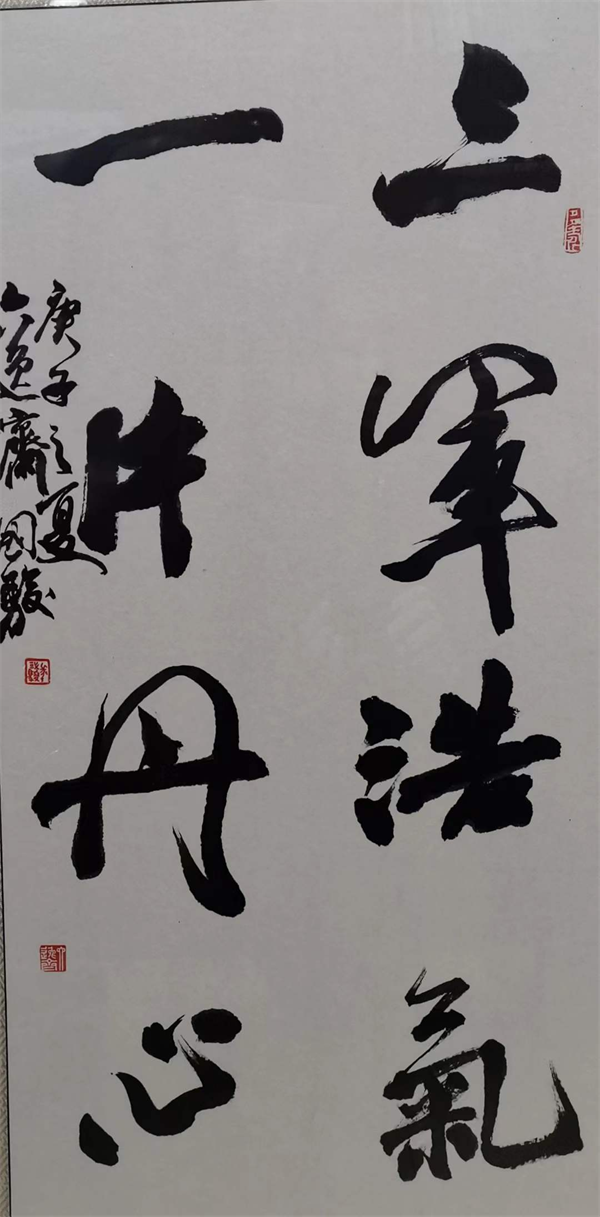 三軍浩氣
一片丹心
庚子之夏
六逸齋國駿